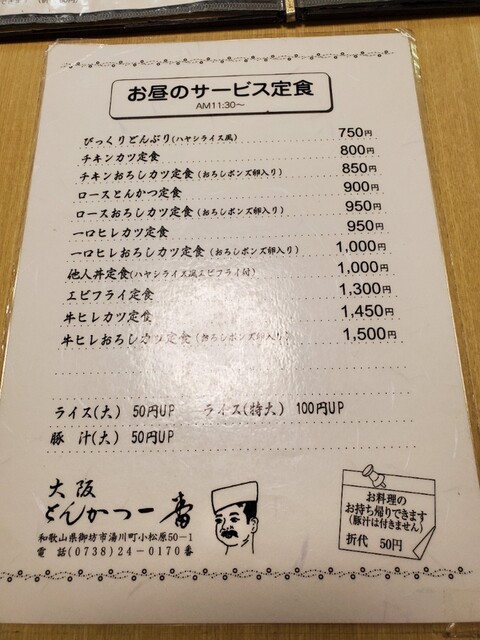 お昼のサービス定食
AM11:30〜
びっくりどんぶり(ハヤシライス風) 750円
チキンカツ定食 800円
チキンおろしカツ定食(おろしポンズ卵入り) 850円
ロースとんかつ定食 900円
ロースおろしカツ定食(おろしポンズ卵入り) 950円
一口ヒレカツ定食 950円
一口ヒレおろしカツ定食(おろしポンズ卵入り) 1,000円
他人丼定食(ハヤシライス風エビフライ付) 1,000円
エビフライ定食 1,300円
牛ヒレカツ定食 1,450円
牛ヒレおろしカツ定食(おろしポンズ卵入り) 1,500円
ライス(大) 50円UP ライス(特大) 100円UP
豚 汁(大) 50円UP
大阪
とんかつ一番
和歌山県御坊市湯川町小松原50−1
電 話(0738)24−0170番
お料理の
お持ち帰りできます
(豚汁は付きません)
折代 50円